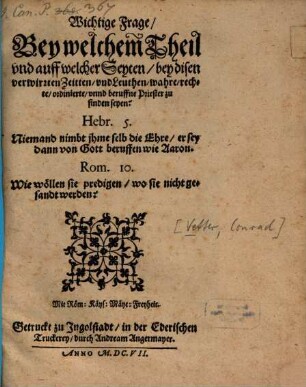 J. Can. P. 367
Wichtige Frage/
Bey welchem Theil
vnd auff welcher Seyten/ bey disen
verwirrten Zeitten/ vnd Leuthen/ wahre/ rech-
te/ ordinierte/ vnnd beruffne Priester zu
finden seyen?
Hebr. 5.
Niemand nimbt jhme selb die Ehre/ er sey
dann von Gott beruffen wie Aaron.
Rom. 10.
Wie wöllen sie predigen/ wo sie nicht ge-
sandt werden?
[Vetter, Conrad]
Mit Röm: Käys: Mäyt: Freyheit.
Getruckt zu Ingolstadt/ in der Ederischen
Truckerey/ durch Andream Angermayer.
ANNO M.DC.VII.